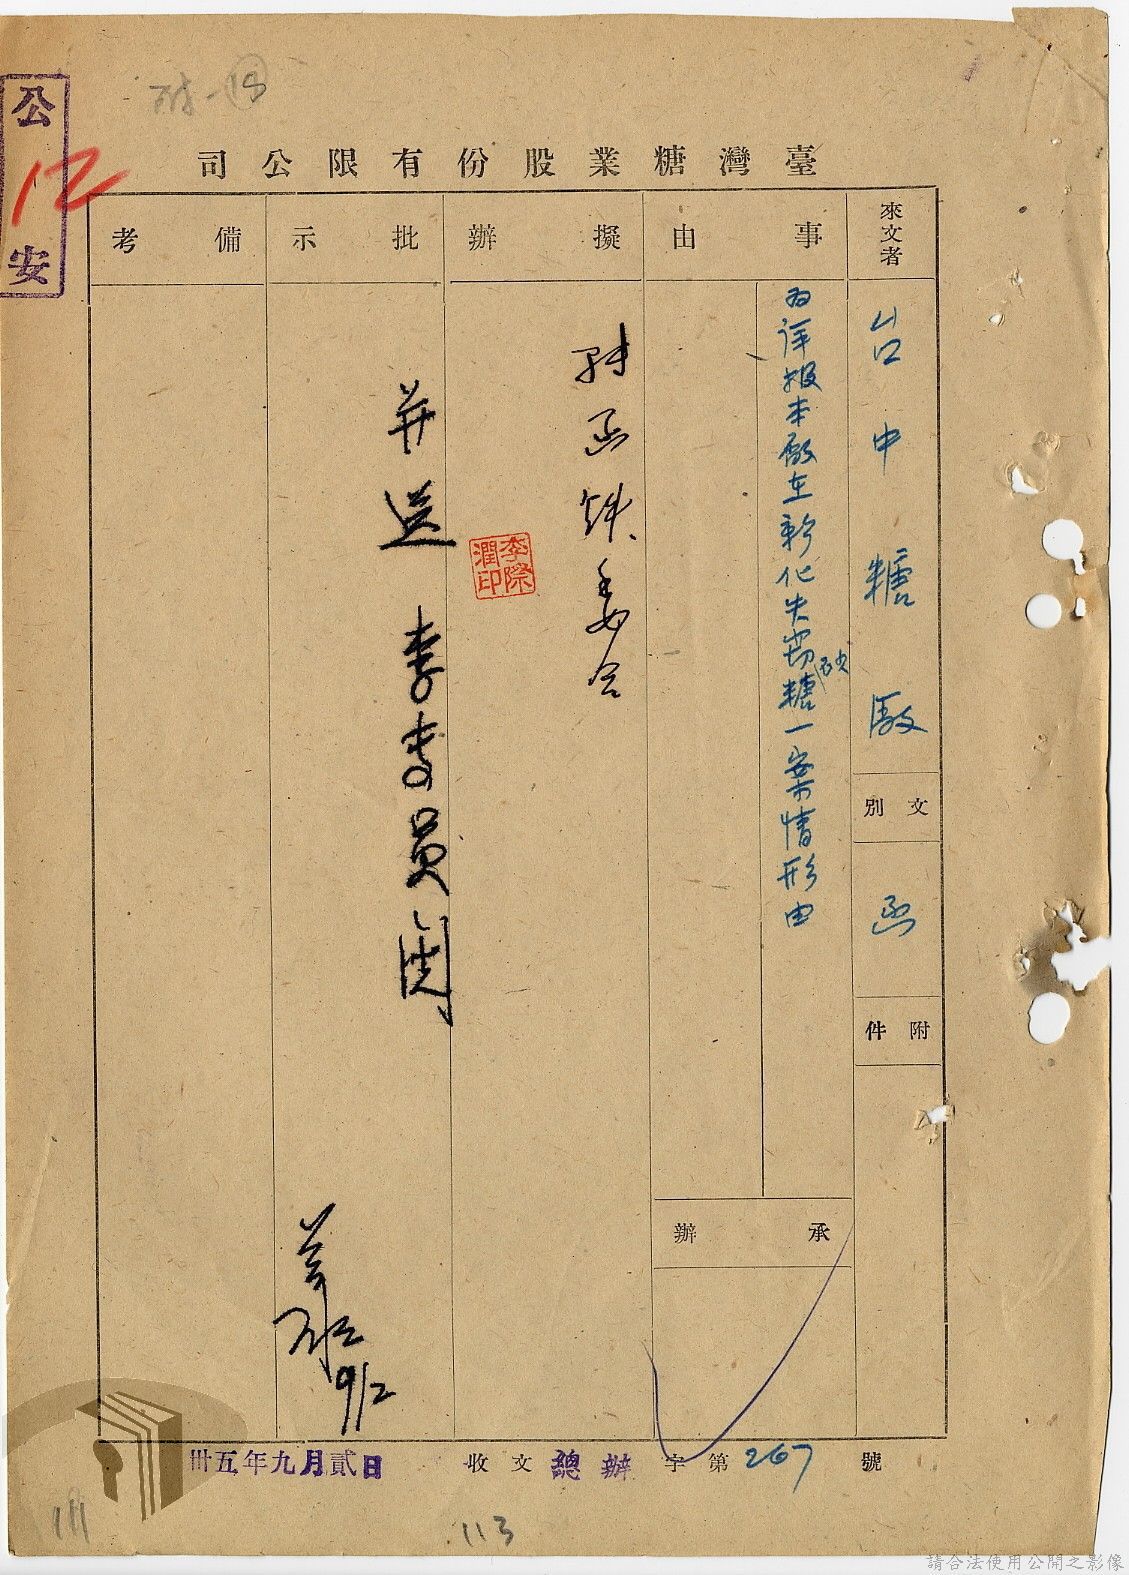 臺灣糖業股份有限公司
來文者
台中糖廠
文別
函
附件
事由
为详报本廠在新化失窃砂糖一案情形由
承辦
擬辦
李際潤印
批示
并送 李委員閱
9/2
備考
公
12
安
卅五年九月貳日
收文總辦字第267號
111
113
請合法使用公開之影像